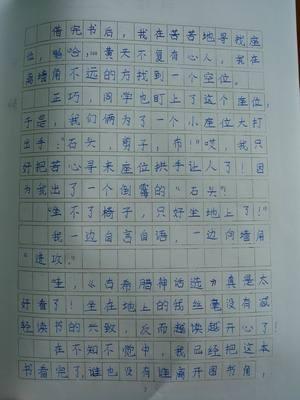 借完书后，我在苦苦地寻找座
位，哈哈，……黄天不复有心人，我在
离墙角不远的方找到一个空位。
正巧，同学也盯上了这个座位，
于是，我们俩为了一个小座位大打
出手：“石头，剪子，布！”哎，我只
好把苦心寻来座位拱手让人了！因
为我出了一个倒霉的“石头”！
“坐不了椅子，只好坐地上了！”
我一边自言自语，一边向墙角
“进攻。”
哇，《古希腊神话选》真是太
好看了！坐在地上的我丝毫没有减
轻读书的兴致，反而越读越开心了！
在不知不觉中，我已经把这本
书看完了，谁也没有谁离开图书角，